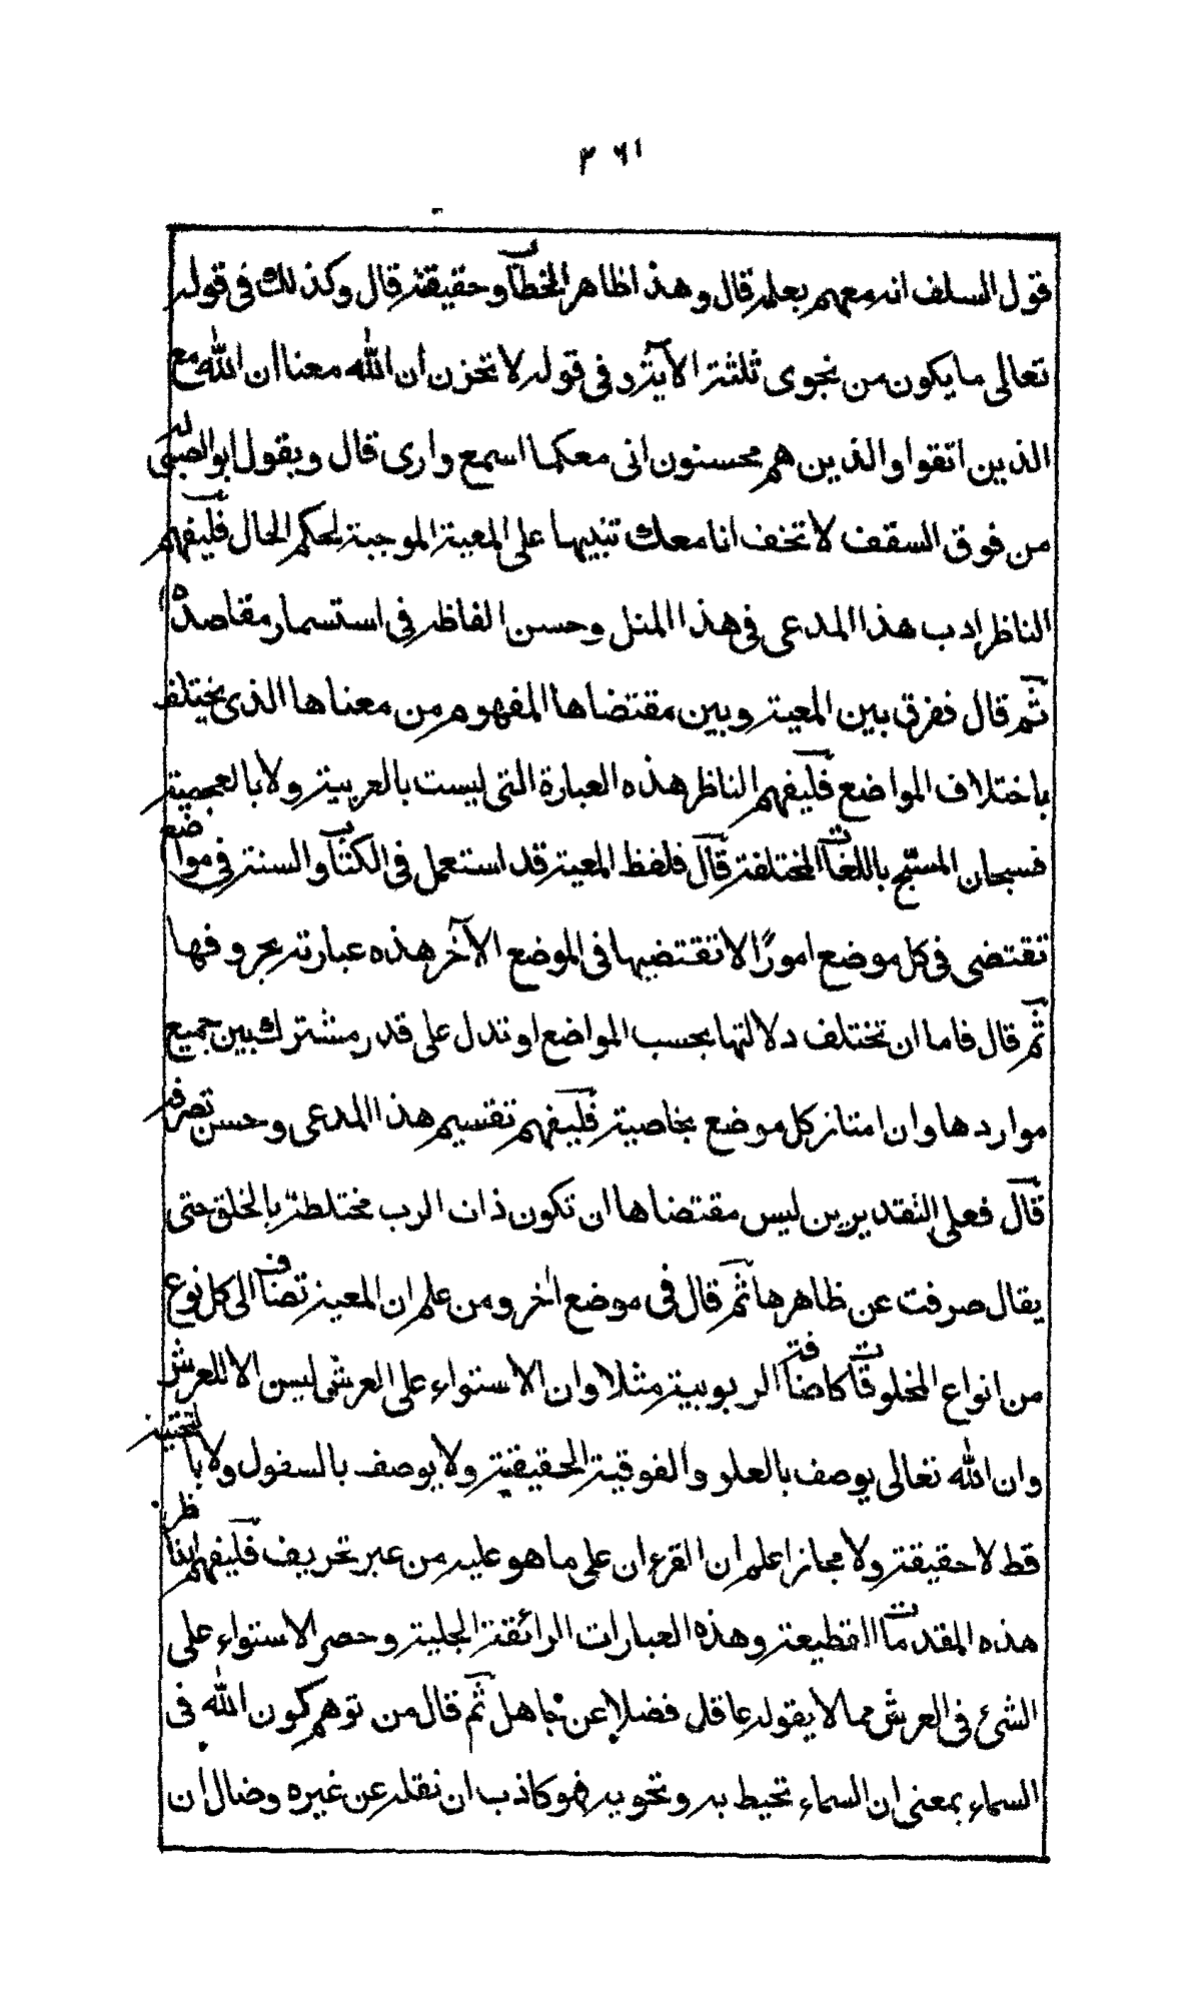 ٣٦١
قول السلف انه معهم بعلمه قال وهذا ظاهر الخطاب وحقيقته قال وكذلك فى قوله
تعالى ما يكون من نجوى ثلثة الآية وفى قوله لا تحزن ان الله معنا ان الله مع
الذين اتقوا والذين هم محسنون انى معكما اسمع وارى قال ويقول ابو الصبى له
من فوق السقف لا تخف انا معك تنبيها على المعية الموجبة لحكم الحال فليفهم
الناظر ادب هذا المدعى فى هذا المثل وحسن الفاظه فى استسمار مقاصده
ثم قال ففرق بين المعية وبين مقتضاها المفهوم من معناها الذى يختلف
باختلاف المواضع فليفهم الناظر هذه العبارة التى ليست بالعربية ولا بالعجمية
فسبحان المسبّح باللغات المختلفة قال فلفظ المعية قد استعمل فى الكتاب والسنة فى مواضع
تقتضى فى كل موضع امورًا لا تقتضيها فى الموضع الآخر هذه عبارته بحروفها
ثم قال فاما ان تختلف دلالتها بحسب المواضع او تدل على قدر مشترك بين جميع
مواردها وان امتاز كل موضع بخاصية فليفهم تقسيم هذا المدعى وحسن تصرفه
قال فعلى التقديرين ليس مقتضاها ان تكون ذات الرب مختلطة بالخلق حتى
يقال صرفت عن ظاهرها ثم قال فى موضع اخر ومن علم ان المعية تضاف الى كل نوع
من انواع المخلوقات كاضافة الربوبية مثلا وان الاستواء على العرش ليس الا للعرش
وان الله تعالى يوصف بالعلو والفوقية الحقيقية ولا يوصف بالسفول ولا بالتحتية
قط لا حقيقة ولا مجازا علم ان القرءان على ما هو عليه من غير تحريف فليفهم الناظر
هذه المقدمات القطيعة وهذه العبارات الرائقة الجلية وحصر الاستواء على
الشئ فى العرش مما لا يقوله عاقل فضلا عن جاهل ثم قال من توهم كون الله فى
السماء بمعنى ان السماء تحيط به وتحويه فهو كاذب ان نقله عن غيره وضال ان